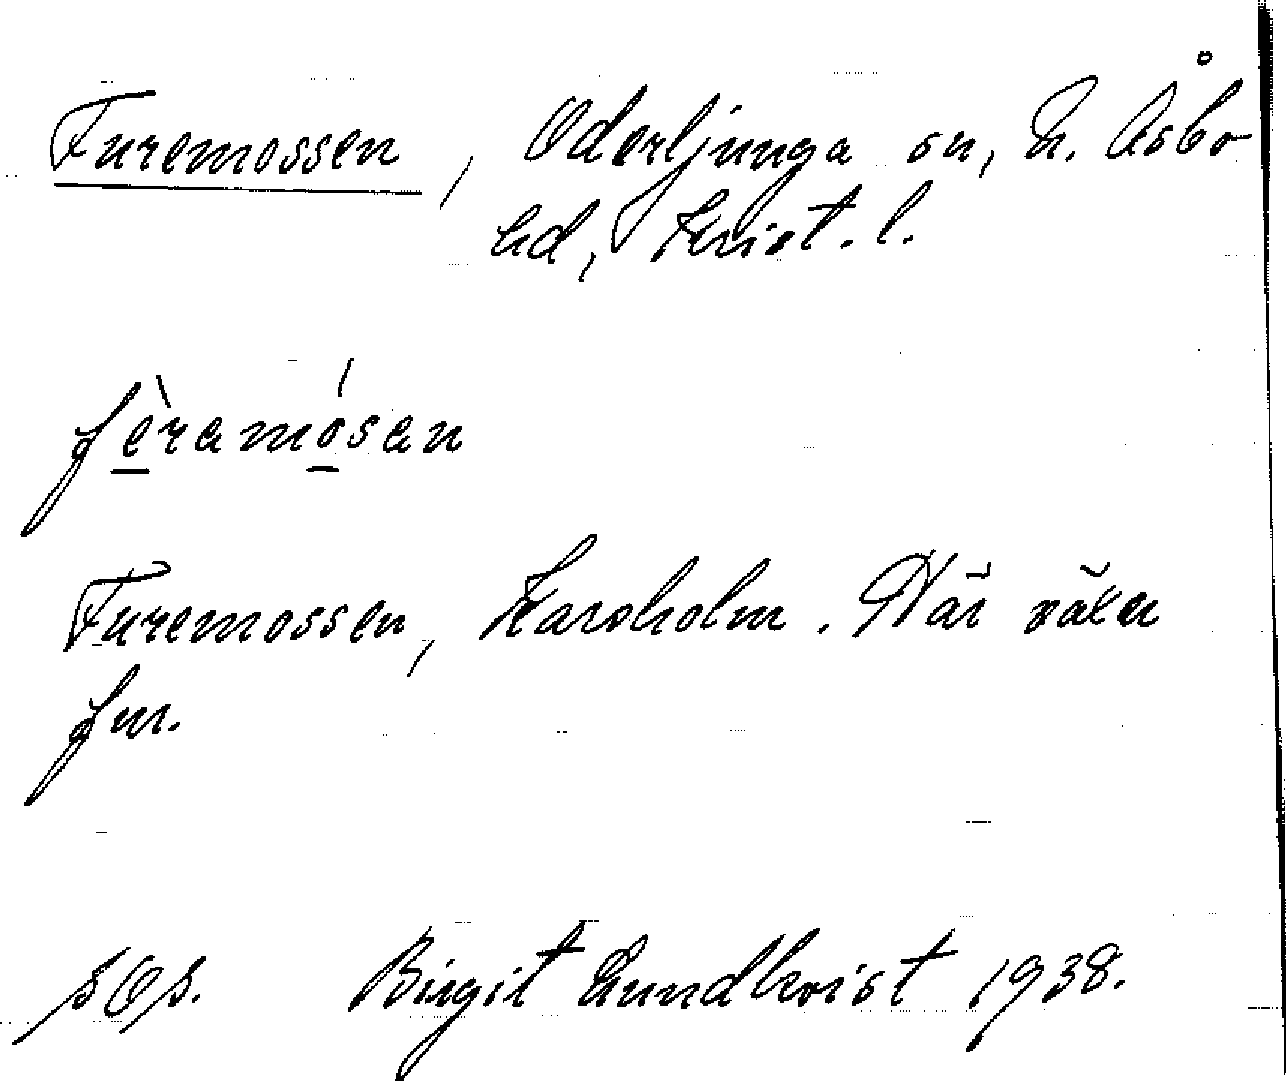 Furemossen, Oderljunga sn, N. Åsbo
hd, Krist. l.
fèramósan
Furemossen, Karsholm. Här växer
fur.
sOs. Birgit Lundkvist 1938.